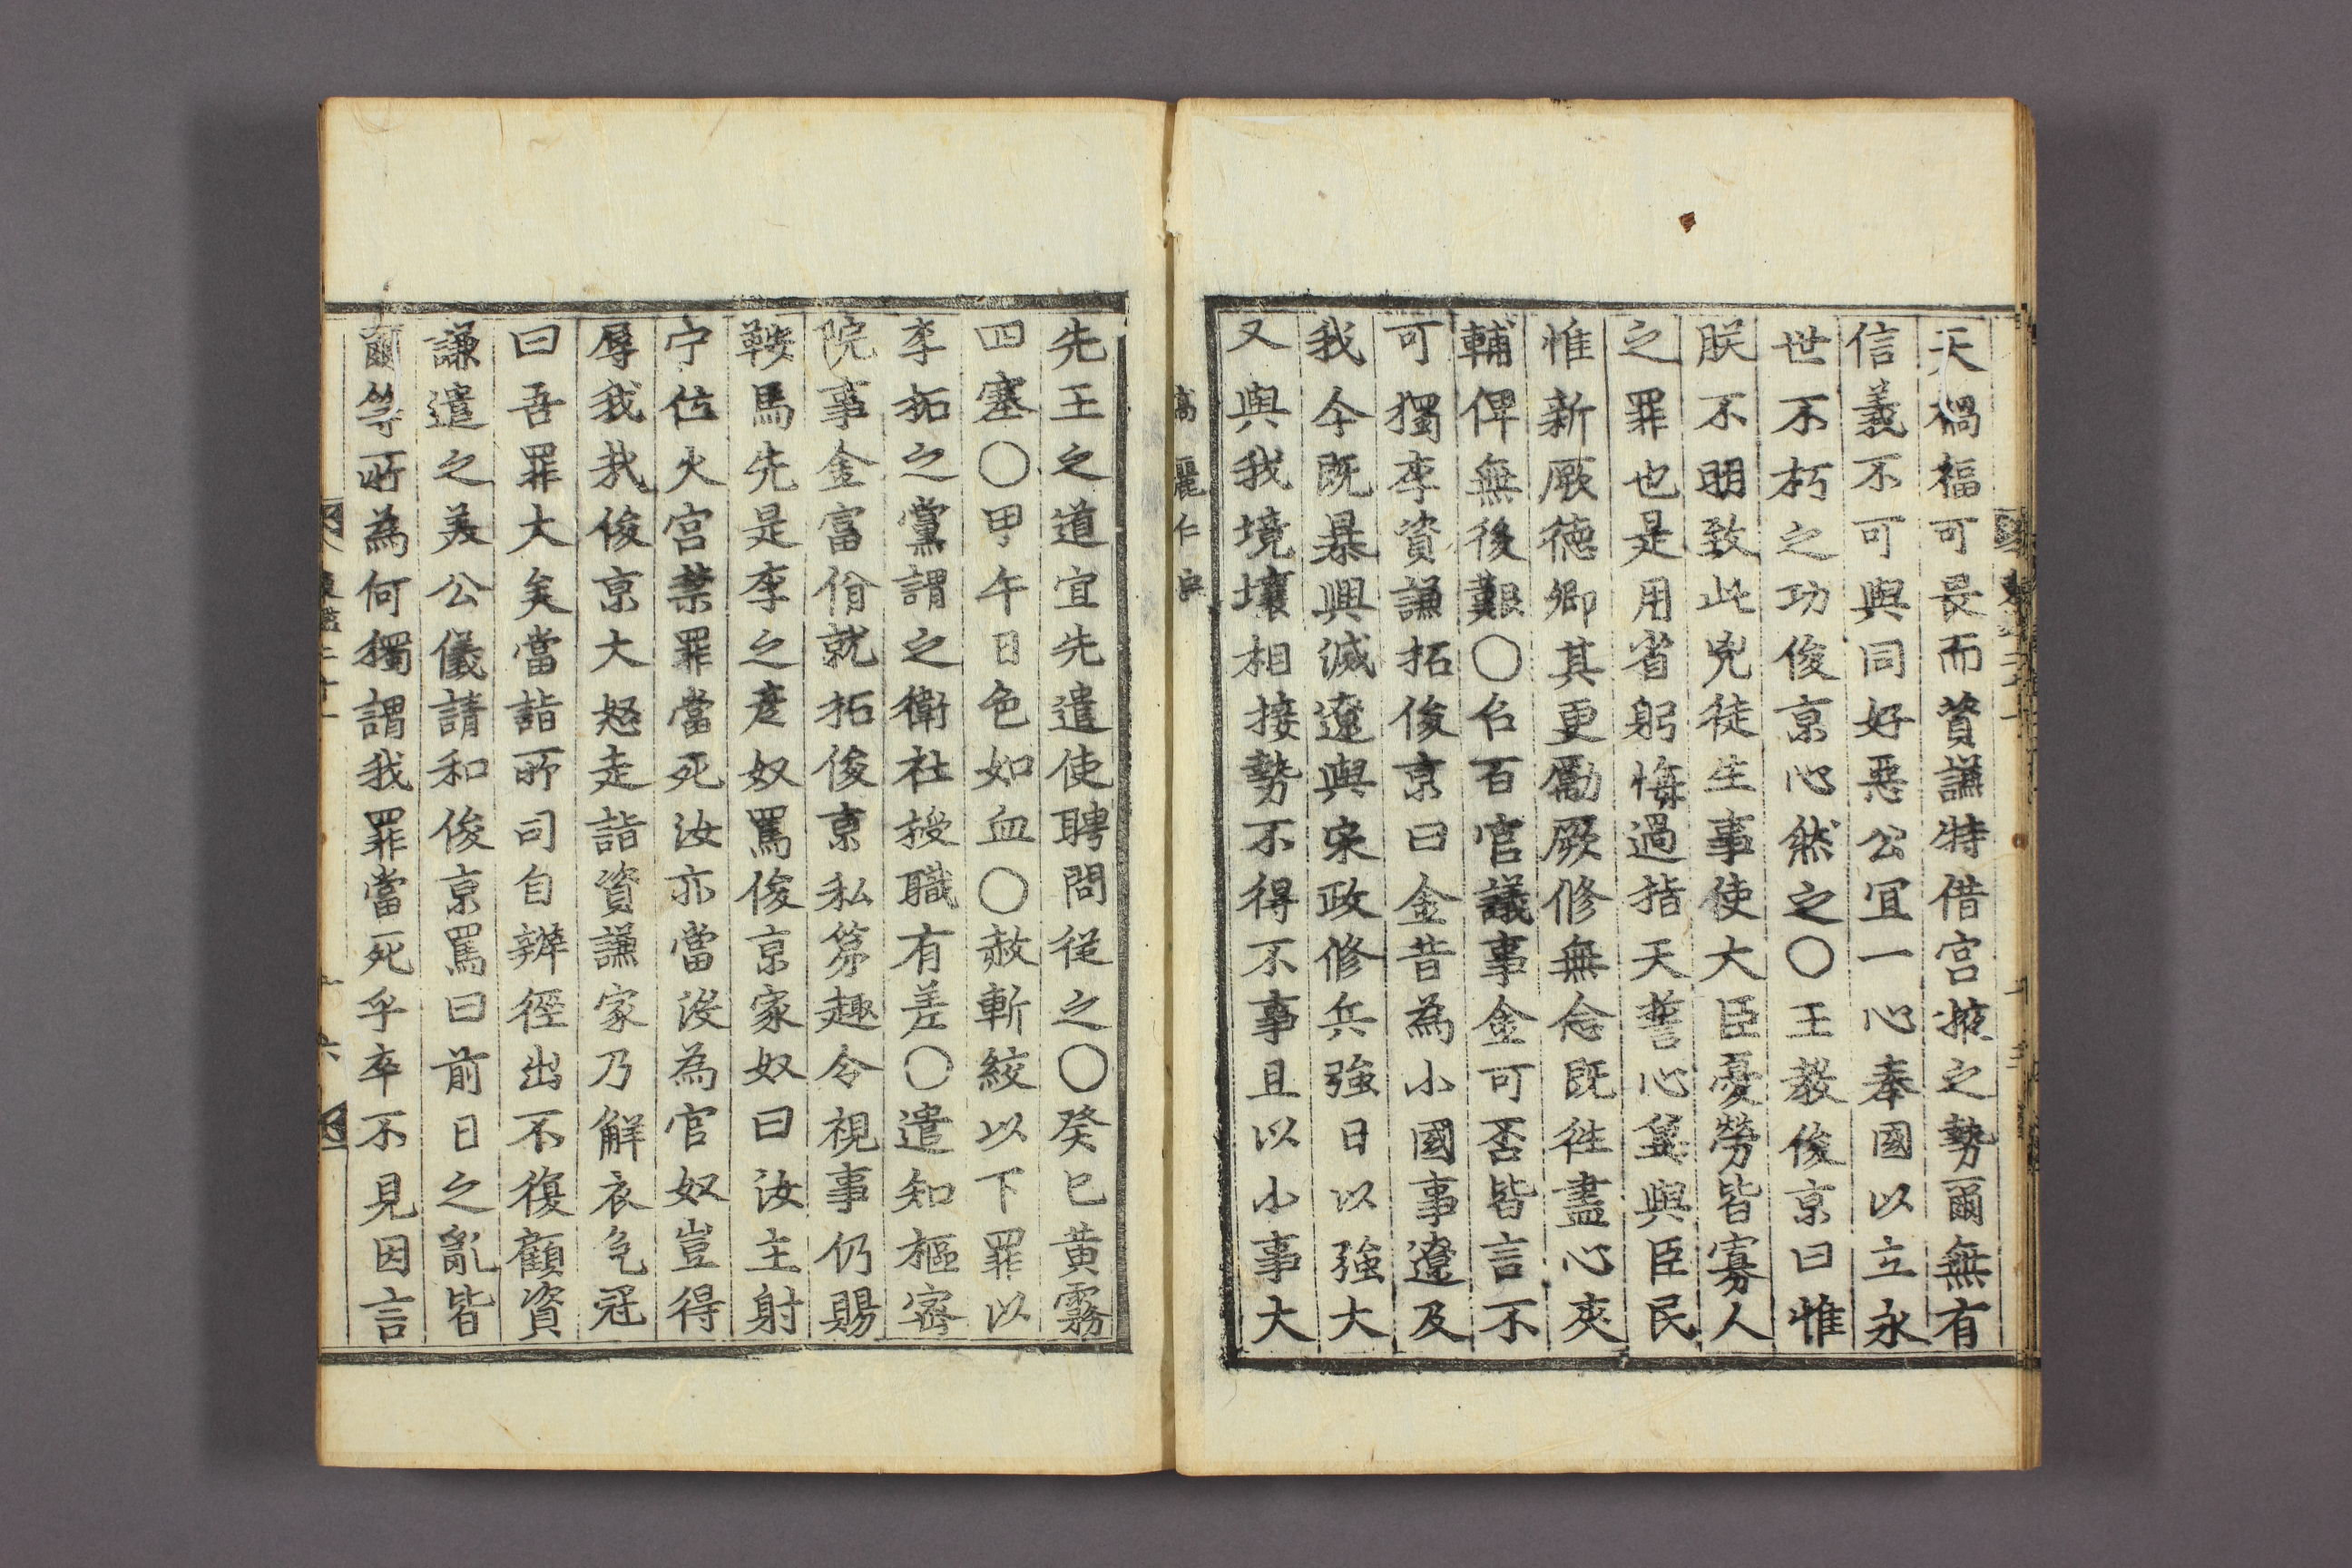 天禍福可畏而資謙特借宮掖之勢爾無有
信義不可與同好惡公宜一心奉國以立永
世不朽之功俊京心然之○王教俊京曰惟
朕不明致此兇徒生事使大臣憂勞皆寡人
之罪也是用省躬悔過指天誓心冀與臣民
惟新厥德卿其更勵厥修無念既往盡心夾
輔俾無後艱○召百官議事金可否皆言不
可獨李資謙拓俊京曰金昔為小國事遼及
我今既暴興滅遼與宋政修兵強日以強大
又與我境壤相接勢不得不事且以小事大
高麗仁宗
先王之道宜先遣使聘問從之○癸巳黃霧
四塞○甲午日色如血○赦斬絞以下罪以
李拓之黨謂之衛社授職有差○遣知樞密
院事金富佾就拓俊京私第趣令視事仍賜
鞍馬先是李之彦奴罵俊京家奴曰汝主射
宁位火宮禁罪當死汝亦當沒為官奴豈得
辱我哉俊京大怒走詣資謙家乃解衣免冠
曰吾罪大矣當詣所司自辨徑出不復顧資
謙遣之美公儀請和俊京罵曰前日之亂皆
爾等所為何獨謂我罪當死乎卒不見因言